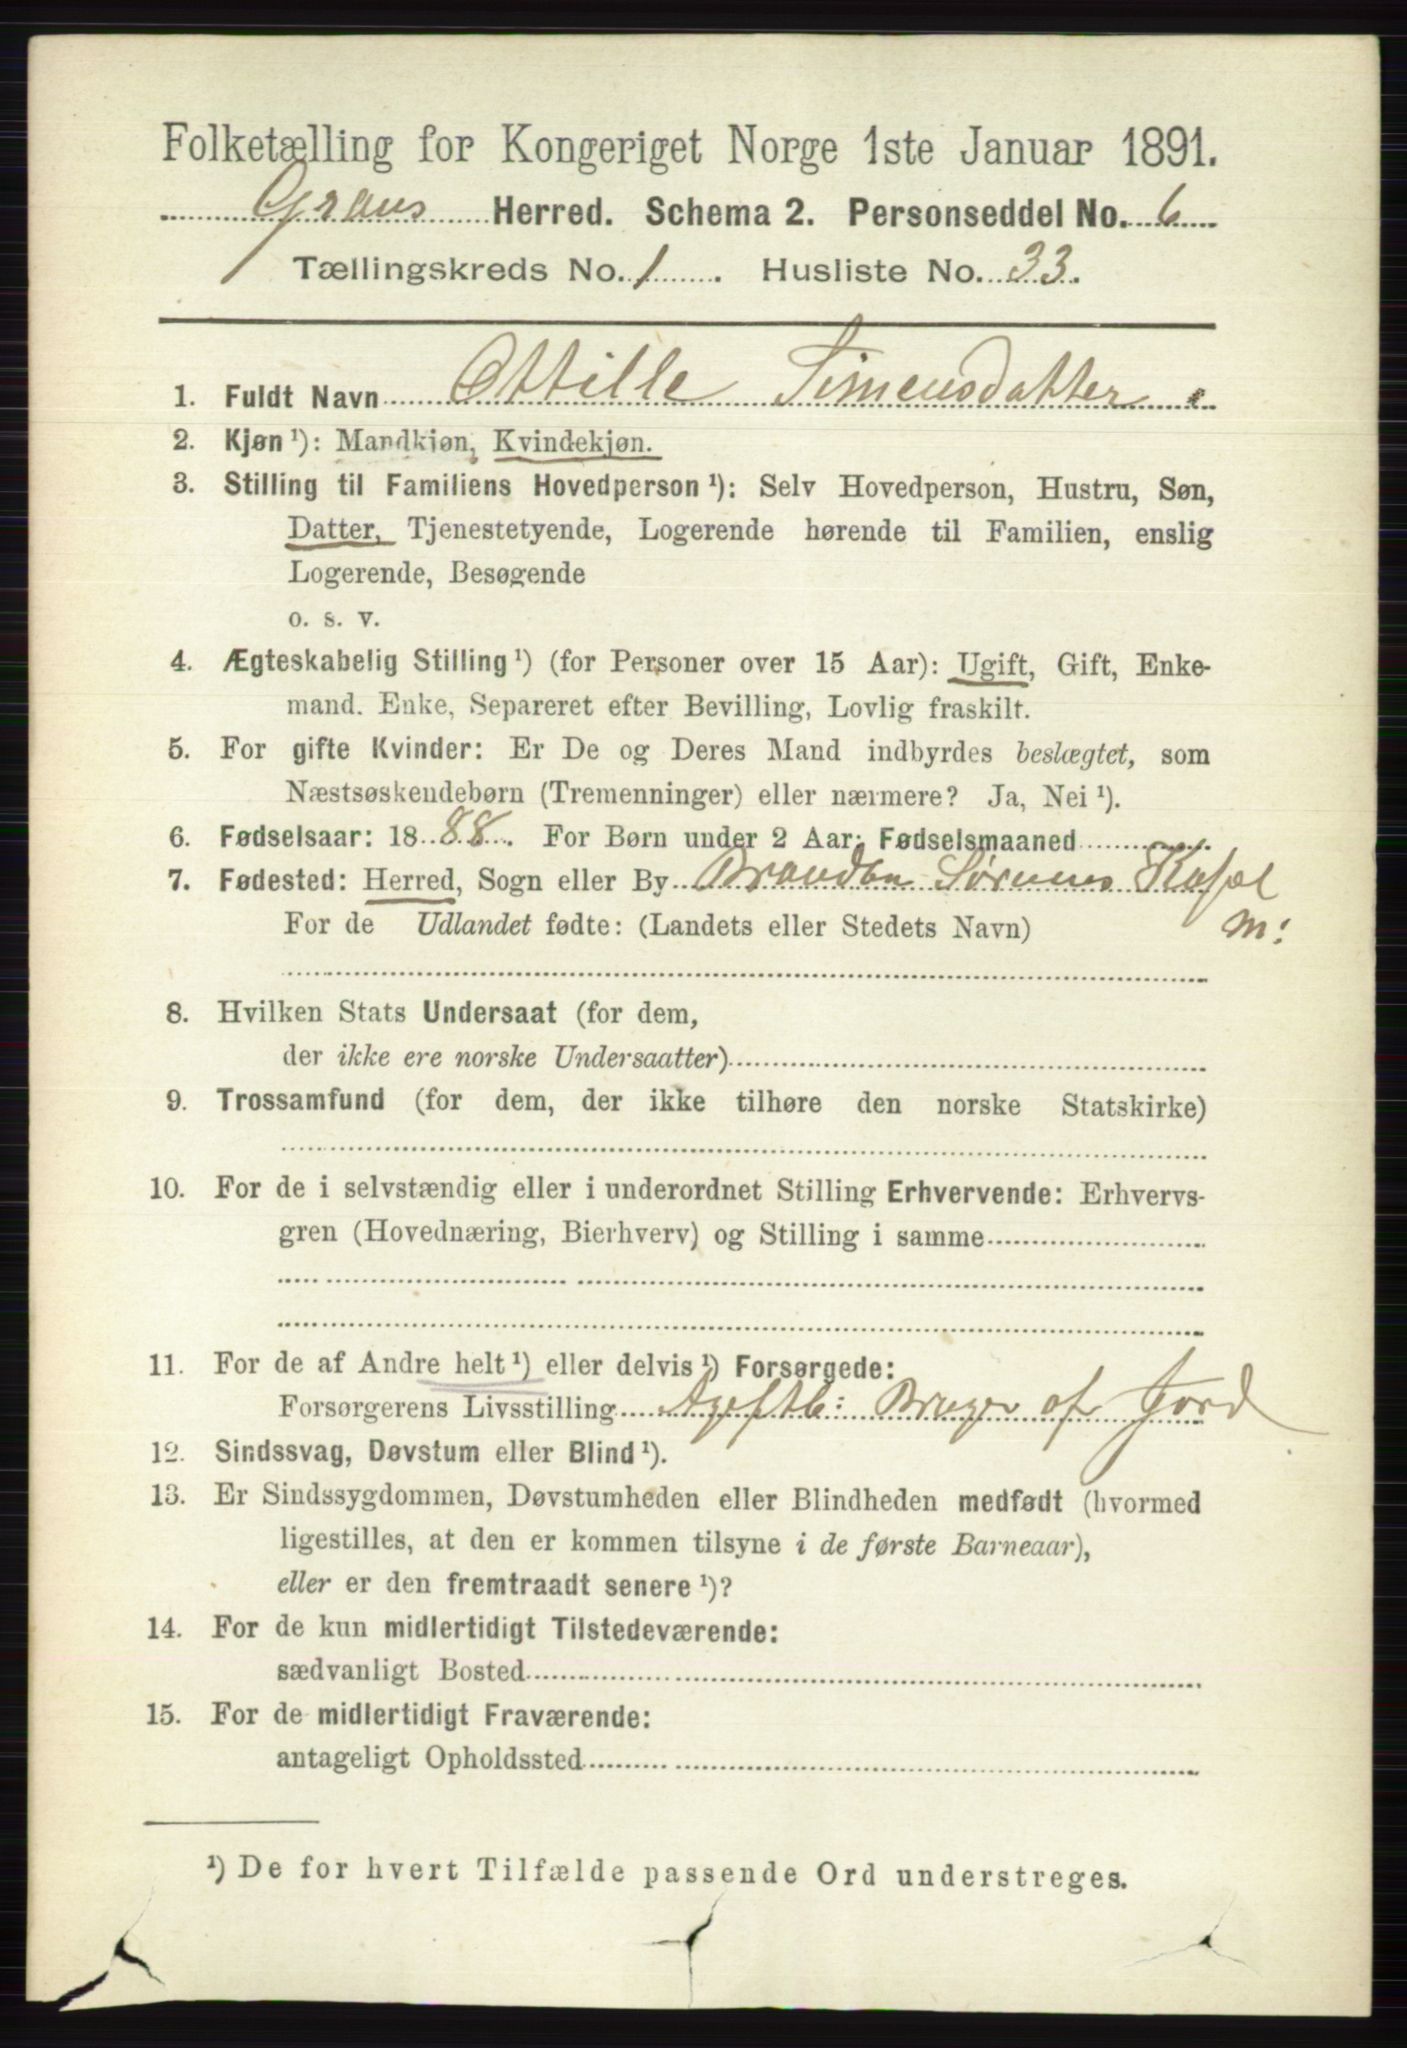 Folketælling for Kongeriget Norge 1ste Januar 1891.
Grans Herred. Schema 2. Personseddel No. 6
Tællingskreds No. 1. Husliste No. 33.
1. Fuldt Navn Ottille Simensdatter
2. Kjøn ¹): Mandkjøn, Kvindekjøn.
3. Stilling til Familiens Hovedperson ¹): Selv Hovedperson, Hustru, Søn,
Datter, Tjenestetyende, Logerende hørende til Familien, enslig
Logerende, Besøgende
o. s. v.
4. Ægteskabelig Stilling ¹) (for Personer over 15 Aar): Ugift, Gift, Enke-
mand. Enke, Separeret efter Bevilling, Lovlig fraskilt.
5. For gifte Kvinder: Er De og Deres Mand indbyrdes beslægtet, som
Næstsøskendebørn (Tremenninger) eller nærmere? Ja, Nei ¹).
6. Fødselsaar: 1888. For Børn under 2 Aar: Fødselsmaaned
7. Fødested: Herred, Sogn eller By Brandbu
For de Udlandet fødte: (Landets eller Stedets Navn)
8. Hvilken Stats Undersaat (for dem,
der ikke ere norske Undersaatter)
9. Trossamfund (for dem, der ikke tilhøre den norske Statskirke)
10. For de i selvstændig eller i underordnet Stilling Erhvervende: Erhvervs-
gren (Hovednæring, Bierhverv) og Stilling i samme
11. For de af Andre helt ¹) eller delvis ¹) Forsørgede:
Forsørgerens Livsstilling Bruger af Jord
12. Sindssvag, Døvstum eller Blind ¹).
13. Er Sindssygdommen, Døvstumheden eller Blindheden medfødt (hvormed
ligestilles, at den er kommen tilsyne i de første Barneaar),
eller er den fremtraadt senere ¹)?
14. For de kun midlertidigt Tilstedeværende:
sædvanligt Bosted
15. For de midlertidigt Fraværende:
antageligt Opholdssted
¹) De for hvert Tilfælde passende Ord understreges.